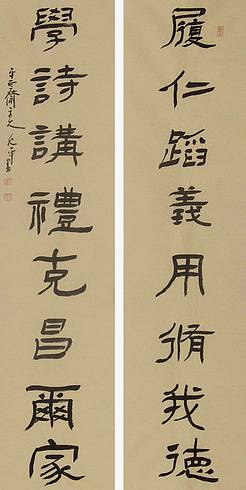 履仁蹈義用脩我德
學詩講禮克昌爾家